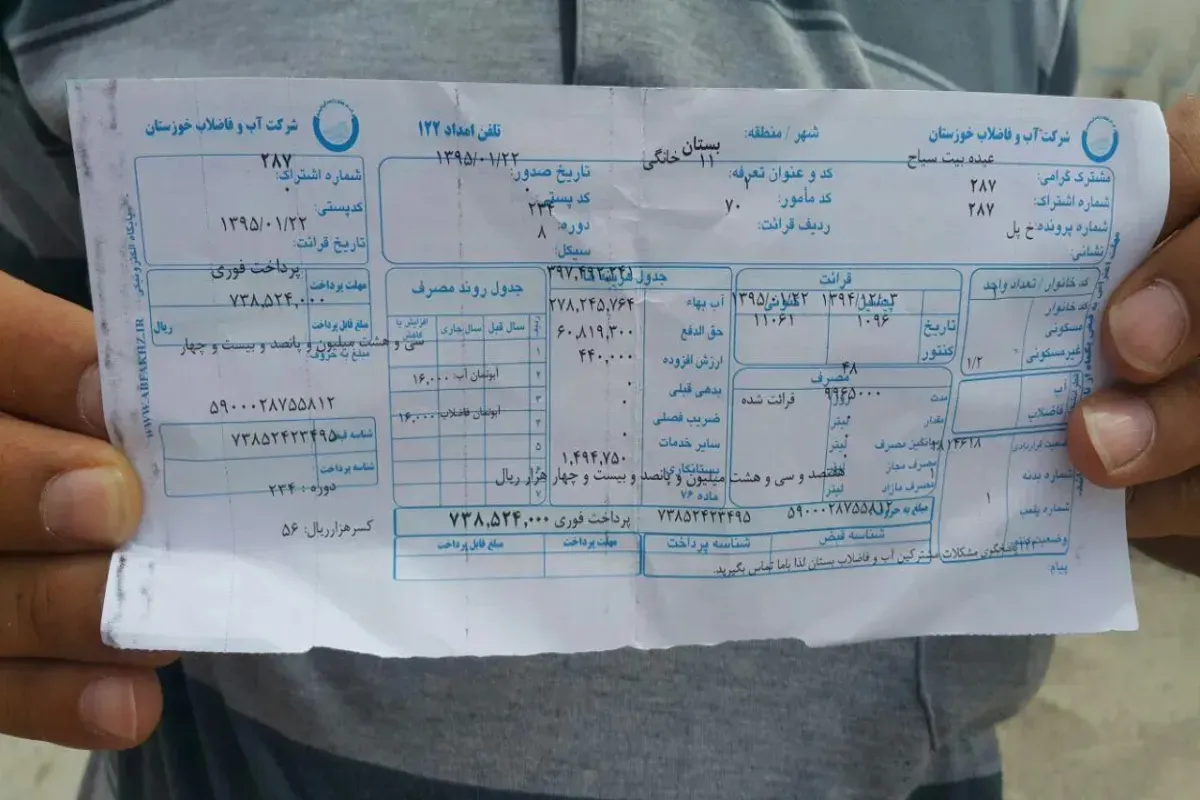 شرکت آب و فاضلاب خوزستان
شهر / منطقه: بستان
تلفن امداد ۱۲۲
مشترک گرامی: عبده بیت سیاح
شماره اشتراک: ۲۸۷
شماره پرونده: ۲۸۷
نشانی: خ پل
کد و عنوان تعرفه: ۱۱ خانگی
کد مأمور: ۲
ردیف قرائت: ۷۰
تاریخ صدور: ۱۳۹۵/۰۱/۲۲
کد پستی: ۰
دوره: ۲۳۴
سیکل: ۸
کد خانوار / تعداد واحد
کد خانوار
مسکونی ۱
غیرمسکونی ۱/۲
آب
فاضلاب
شماره بدنه
شماره پلمب ۱
قرائت
تاریخ ۱۳۹۴/۱۲/۰۳ ۱۳۹۵/۰۱/۲۲
کنتور ۱۰۹۶ ۱۱۰۶۱
مصرف
مدت ۴۸
مقدار لیتر ۹۹۶۵۰۰۰ قرائت شده
میانگین مصرف لیتر
مصرف مجاز لیتر
مصرف مازاد لیتر
جدول هزینه ها
۳۹۷,۴۹۲,۲۴۱
آب بهاء ۲۷۸,۲۴۵,۷۶۴
حق الدفع ۶۰,۸۱۹,۳۰۰
ارزش افزوده ۴۴۰,۰۰۰
بدهی قبلی ۰
ضریب فصلی ۰
سایر خدمات ۰
بستانکاری ۱,۴۹۴,۷۵۰
ماده ۷۶
جدول روند مصرف
سال قبل سال جاری افزایش یا کاهش
۱
۲ آبونمان آب: ۱۶,۰۰۰
۳
۴ آبونمان فاضلاب: ۱۶,۰۰۰
۵
۶
۷
هفتصد و سی و هشت میلیون و پانصد و بیست و چهار هزار ریال
مبلغ به حروف
۵۹۰۰۰۲۸۷۵۵۸۱۲ ۷۳۸۵۲۴۲۳۴۹۵ پرداخت فوری ۷۳۸,۵۲۴,۰۰۰
شناسه قبض شناسه پرداخت مهلت پرداخت مبلغ قابل پرداخت
پاسخگوی مشکلات مشترکین آب و فاضلاب بستان لذا باما تماس بگیرید.
پیام:
شرکت آب و فاضلاب خوزستان
شماره اشتراک: ۲۸۷
کدپستی: ۰
تاریخ قرائت: ۱۳۹۵/۰۱/۲۲
مهلت پرداخت پرداخت فوری
مبلغ قابل پرداخت ۷۳۸,۵۲۴,۰۰۰ ریال
مبلغ به حروف
سی و هشت میلیون و پانصد و بیست و چهار
۵۹۰۰۰۲۸۷۵۵۸۱۲
شناسه قبض ۷۳۸۵۲۴۲۳۴۹۵
شناسه پرداخت
دوره : ۲۳۴
کسرهزارریال: ۵۶
پایگاه الکترونیکی: WWW.ABFAKHZ.IR